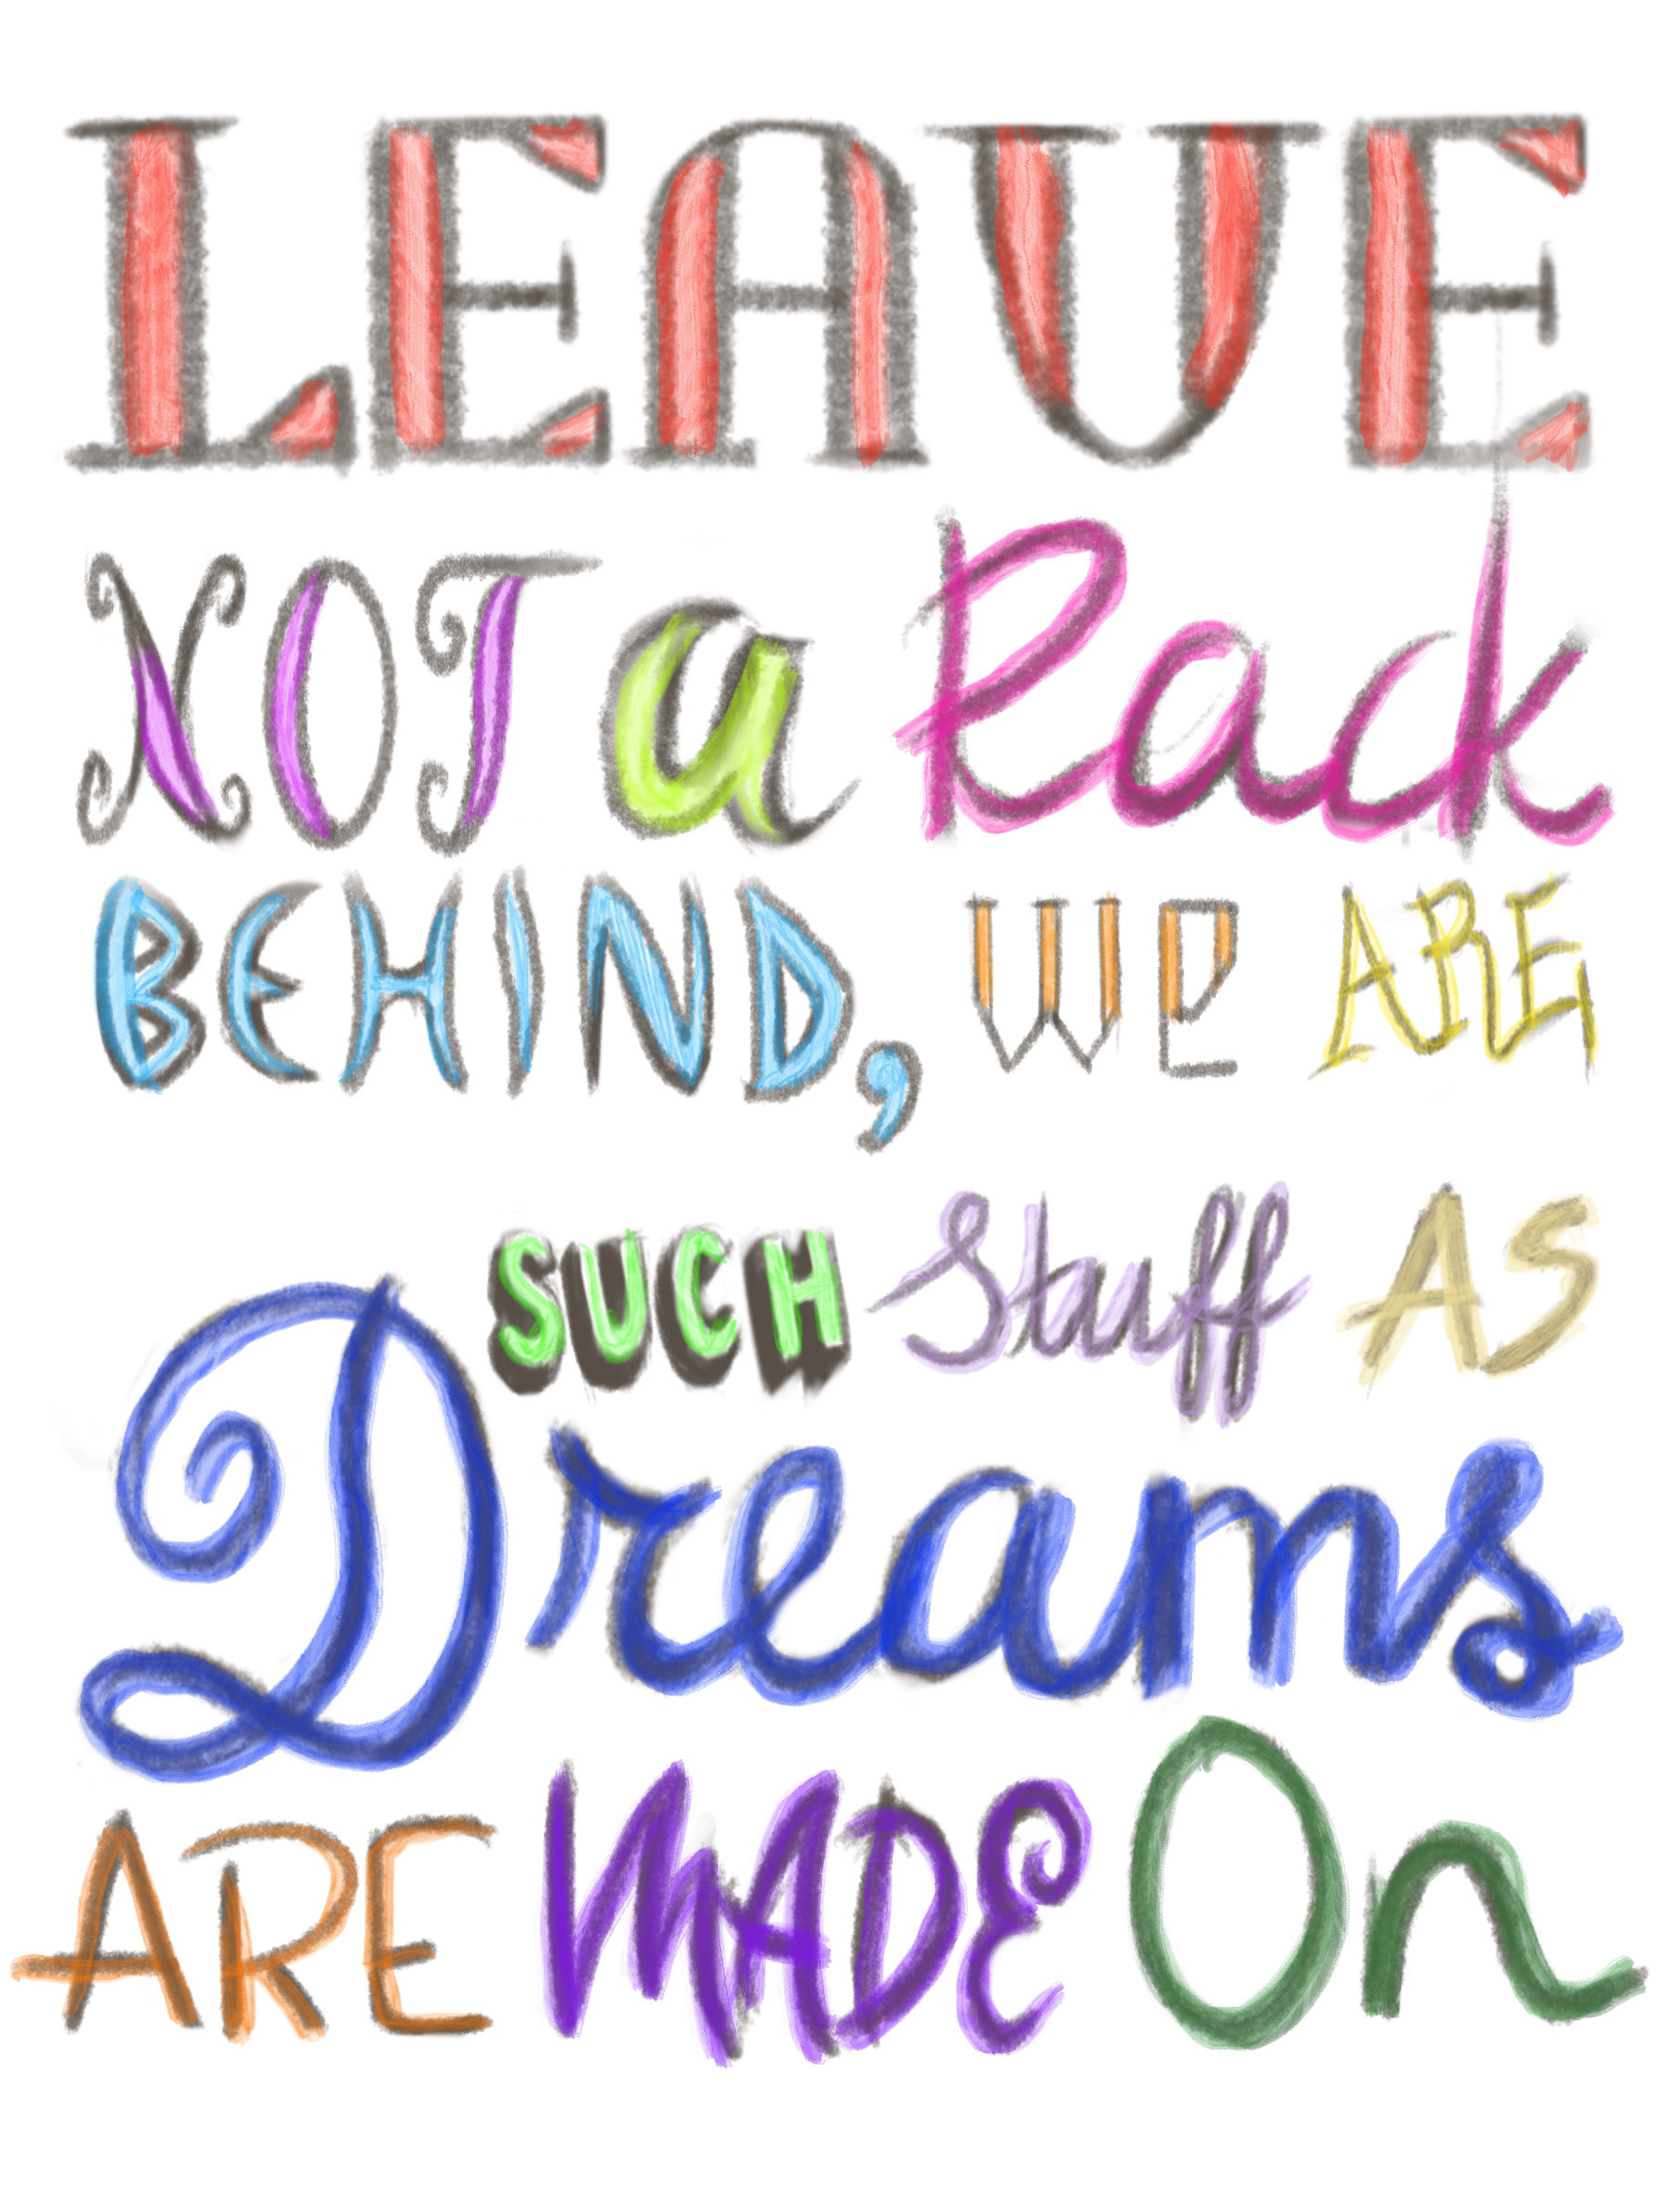 LEAVE
NOT a Rack
BEHIND, WE ARE
SUCH Stuff AS
Dreams
ARE MADE On